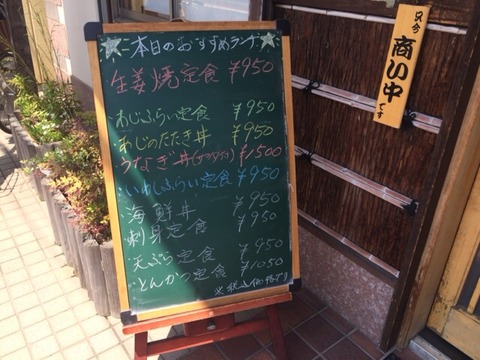 本日のおすすめランチ
生姜焼定食 ¥950
あじふらい定食 ¥950
あじのたたき丼 ¥950
うなぎ丼 ¥1500
いわしふらい定食 ¥950
海鮮丼 ¥950
刺身定食 ¥950
天ぷら定食 ¥950
とんかつ定食 ¥1050
※税込価格です
只今
商い中
です